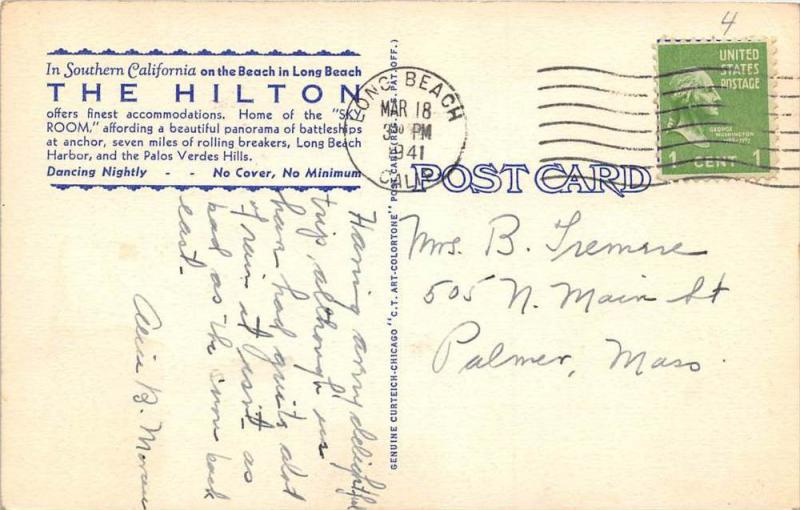 4
In Southern California on the Beach in Long Beach
THE HILTON
offers finest accommodations. Home of the "SKY
ROOM," affording a beautiful panorama of battleships
at anchor, seven miles of rolling breakers, Long Beach
Harbor, and the Palos Verdes Hills.
Dancing Nightly - - No Cover, No Minimum
LONG BEACH
MAR 18
3 30 PM
41
CALIF.
UNITED
STATES
POSTAGE
GEORGE
WASHINGTON
1 CENT 1
POST CARD
GENUINE CURTEICH-CHICAGO "C.T. ART-COLORTONE" POST CARD (REG. U.S. PAT. OFF.)
Mrs. B.
505 N. Main St
Palmer, Mass.
Having a delightful
trip, although we
have had quite alot
of rain it isn't as
bad as the snow back
east.
Alice B.